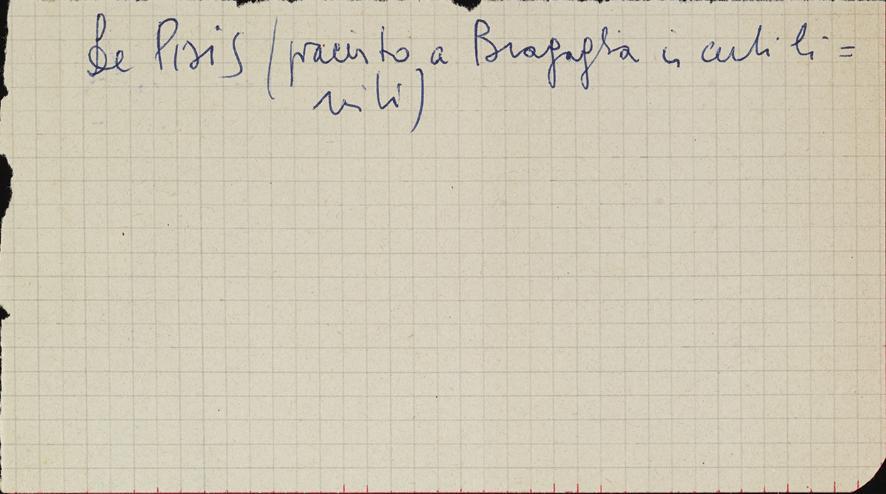 De Pisis (piaciuto a Bragaglia in certi li=
miti)